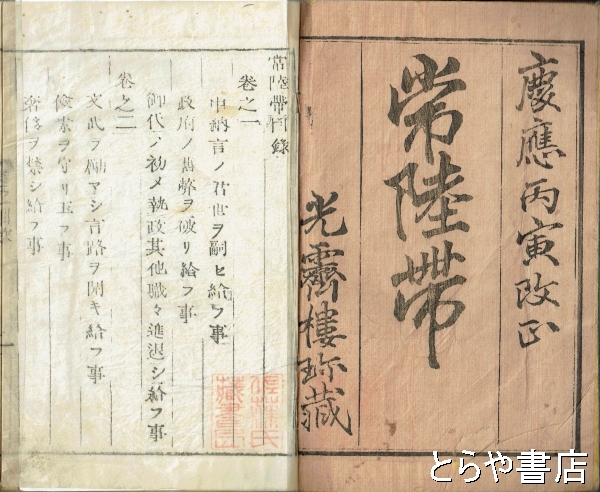 慶應丙寅改正
常陸帶
光霽樓珍藏
常陸帶目録
卷之一
中納言ノ君世ヲ嗣ヒ給フ事
政府ノ舊弊ヲ破リ給フ事
御代ノ初メ執政其他職々進退シ給フ事
卷之二
文武ヲ勵マシ言路ヲ開キ給フ事
儉素ヲ守リ玉フ事
奢侈ヲ禁シ給フ事
藏書印
とらや書店